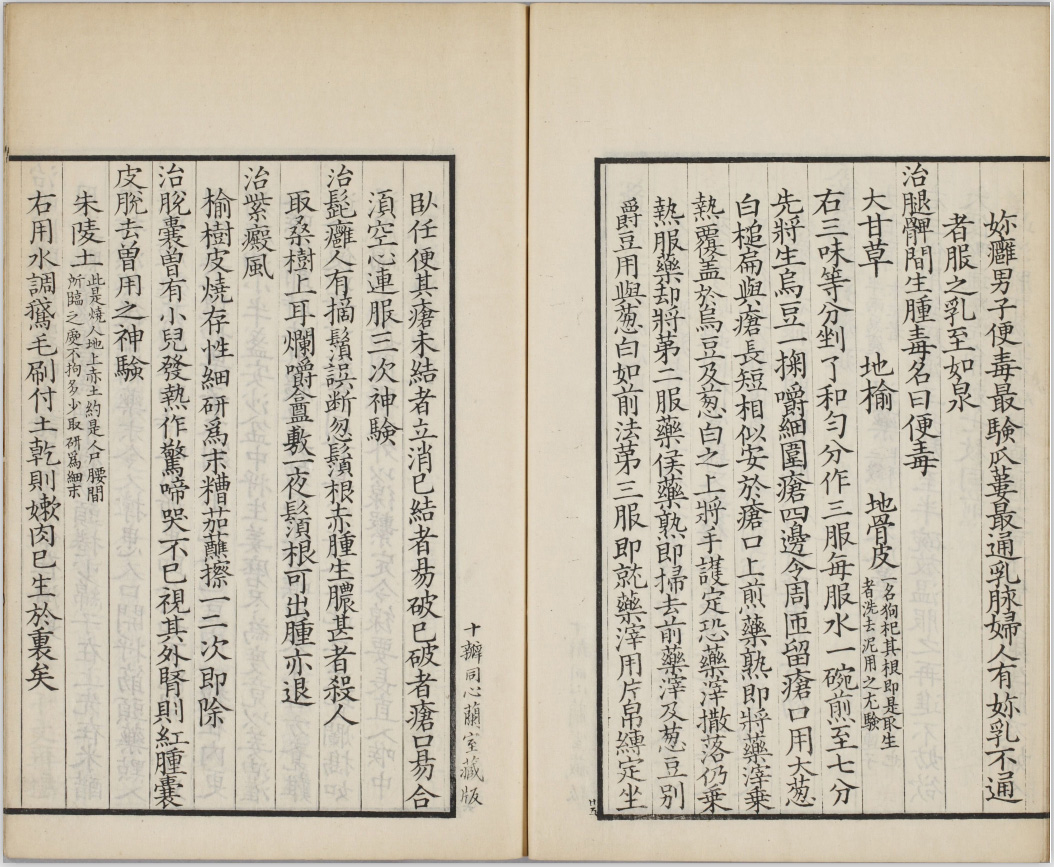 妳癰男子便毒最験瓜蔞最通乳脉婦人有妳乳不通
者服之乳至如泉
治腿髀間生腫毒名曰便毒
大甘草　地榆　地骨皮一名狗杞其根即是取生
者洗去泥用之尤驗
右三味等分剉了和勻分作三服每服水一碗煎至七分
先將生烏豆一掬嚼細圍瘡四邊令周匝留瘡口用大葱
白槌扁與瘡長短相似安於瘡口上煎藥熟即將藥滓乗
熱覆蓋於烏豆及葱白之上將手護定恐藥滓撒落仍乗
熱服藥却將苐二服藥俟藥熟即掃去前藥滓及葱豆别
嚼豆用與葱白如前法苐三服即就藥滓用片帛縳定坐
廿五
十瓣同心蘭室藏版
臥任便其瘡未結者立消已結者昜破已破者瘡口昜合
湏空心連服三次神驗
治髭癰人有摘鬚誤断忽鬚根赤腫生膿甚者殺人
取桑樹上耳爛嚼盒敷一夜鬚根可出腫亦退
治紫癜風
榆樹皮燒存性細研爲末糟茄蘸擦一二次即除
治脫囊曾有小兒發熱作驚啼哭不已視其外腎則紅腫囊
皮脫去曽用之神驗
朱陵土此是燒人地上赤土約是人尸腰間
所臨之處不拘多少取研爲細末
右用水調鵞毛刷付土乾則嫰肉已生於裏矣